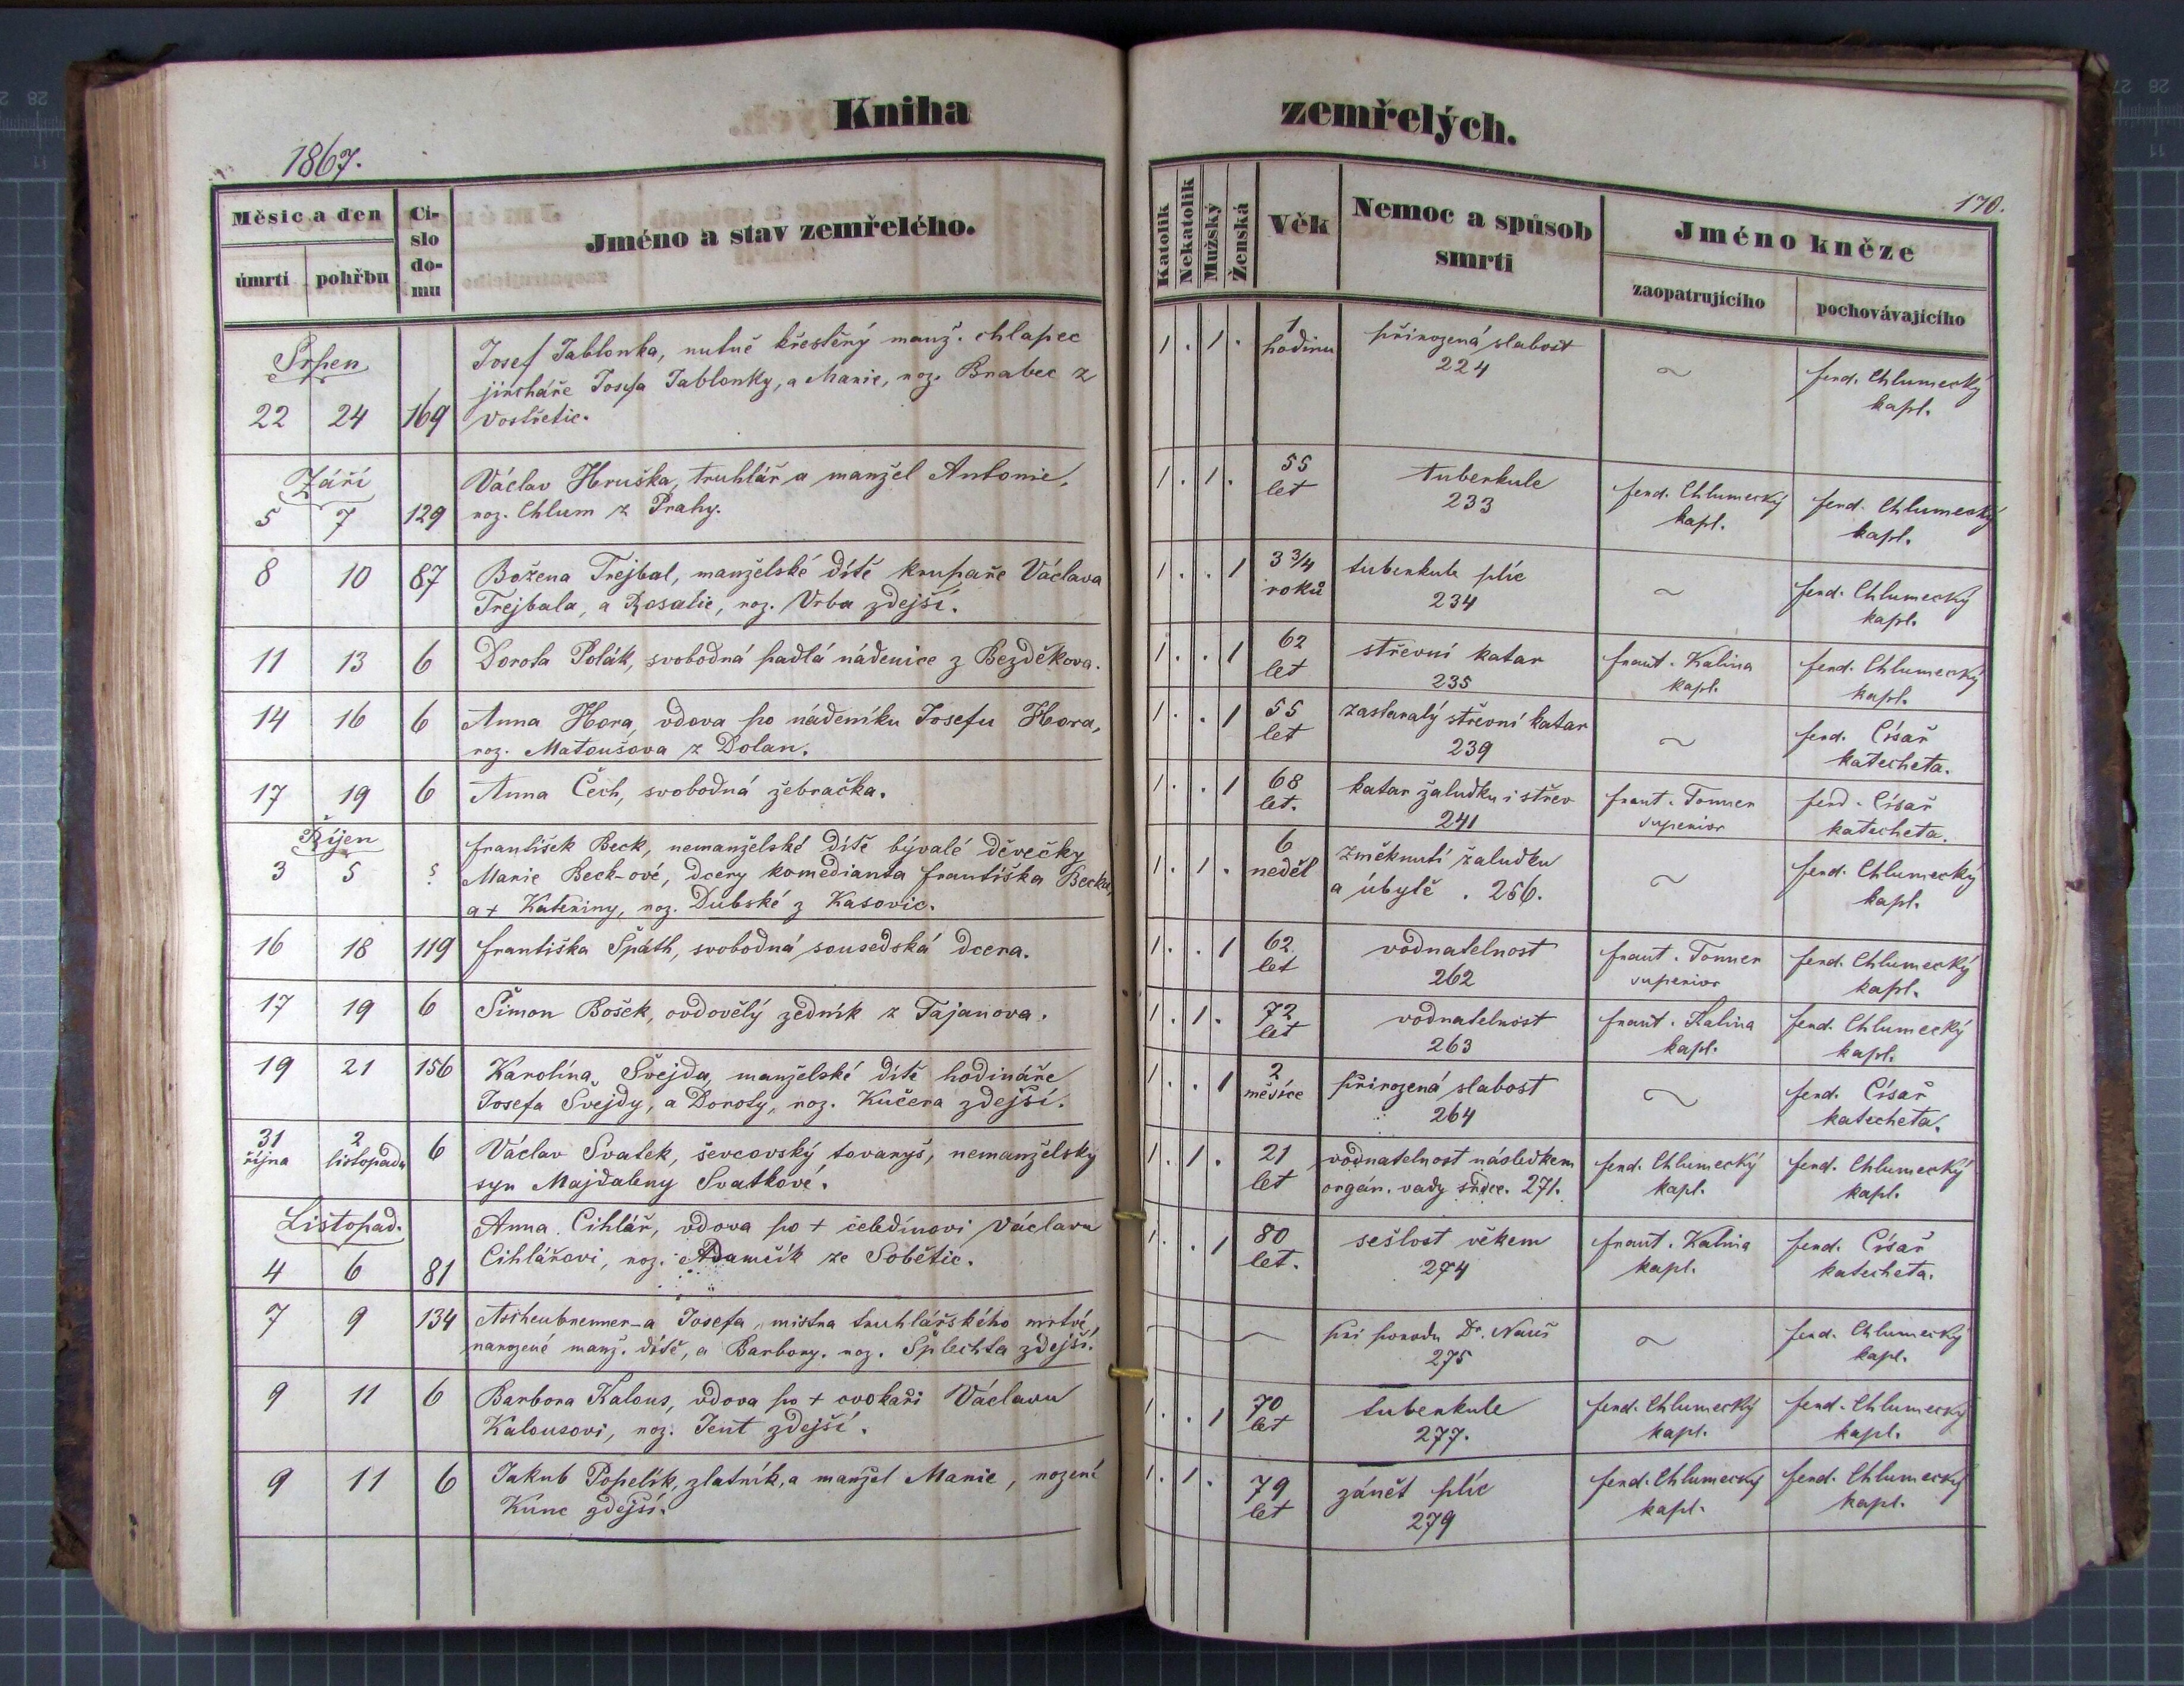 Kniha zemřelých.
1867.
170.
Měsíc a den
úmrtí pohřbu
Čí-
slo
do-
mu
Jméno a stav zemřelého.
Katolík
Nekatolík
Mužský
Ženská
Věk
Nemoc a spůsob
smrti
Jméno kněze
zaopatrujícího
pochovávajícího
Srpen
22 24 169
Josef Jablonka, nutně křestěný manž. chlapec
jircháře Josefa Jablonky, a Marie, roz. Brabec z
Vostřetic.
1 . 1 .
1
hodinu
přirozená slabost
224
~
ferd. Chlumecký
kapl.
Září
5 7 129
Václav Hruška, truhlář a manžel Antonie,
roz. Chlum z Prahy.
1 . 1 .
55
let
tuberkule
233
ferd. Chlumecký
kapl.
ferd. Chlumecký
kapl.
8 10 87
Božena Trejbal, manželské dítě krupaře Václava
Trejbala, a Rosalie, roz. Vrba zdejší.
1 . . 1
3 3/4
roků
tuberkule plic
234
~
ferd. Chlumecký
kapl.
11 13 6
Dorota Polák, svobodná padlá nádenice z Bezděkova.
1 . . 1
62
let
střevní katar
235
frant. Kalina
kapl.
ferd. Chlumecký
kapl.
14 16 6
Anna Hora, vdova po nádeníku Josefu Hora,
roz. Matoušova z Dolan.
1 . . 1
55
let
zastaralý střevní katar
239
~
ferd. Císař
katecheta.
17 19 6
Anna Čech, svobodná žebračka.
1 . . 1
68
let.
katar žaludku i střev
241
frant. Tonner
superior
ferd. Císař
katecheta.
Říjen
3 5
františek Beck, nemanželské dítě bývalé děvečky
Marie Beck-ové, dcery komedianta františka Becka,
a + Kateřiny, roz. Dubské z Kasovic.
1 . 1 .
6
neděl
změknutí žaludku
a úbytě . 256.
~
ferd. Chlumecký
kapl.
16 18 119
františka Späth, svobodná sousedská dcera.
1 . . 1
62
let
vodnatelnost
262
frant. Tonner
superior
ferd. Chlumecký
kapl.
17 19 6
Šimon Bošek, ovdovělý zedník z Tajanova.
1 . 1 .
72
let
vodnatelnost
263
frant. Kalina
kapl.
ferd. Chlumecký
kapl.
19 21 156
Karolína Švejda, manželské dítě hodináře
Josefa Švejdy, a Doroty, roz. Kučera zdejší.
1 . . 1
2
měsíce
přirozená slabost
264
~
ferd. Císař
katecheta.
31
října
2
listopadu
6
Václav Svatek, ševcovský tovaryš, nemanželský
syn Majdaleny Svatkové.
1 . 1 .
21
let
vodnatelnost následkem
orgán. vady srdce. 271.
ferd. Chlumecký
kapl.
ferd. Chlumecký
kapl.
Listopad.
4 6 81
Anna Cihlář, vdova po + čeledínovi Václavu
Cihlářovi, roz. Adamčík ze Sobětic.
1 . . 1
80
let.
sešlost věkem
274
frant. Kalina
kapl.
ferd. Císař
katecheta.
7 9 134
Aschenbrenner-a Josefa, mistra truhlářského mrtvé
narozené manž. dítě, a Barbory, roz. Šplechta zdejší.
při porodu Dr. Nauš
275
~
ferd. Chlumecký
kapl.
9 11 6
Barbora Kalous, vdova po + cvokaři Václavu
Kalousovi, roz. Jent zdejší.
1 . . 1
70
let
tuberkule
277.
ferd. Chlumecký
kapl.
ferd. Chlumecký
kapl.
9 11 6
Jakub Popelík, zlatník, a manžel Marie, rození
Kunc zdejší.
1 . 1 .
79
let
zánět plic
279
ferd. Chlumecký
kapl.
ferd. Chlumecký
kapl.